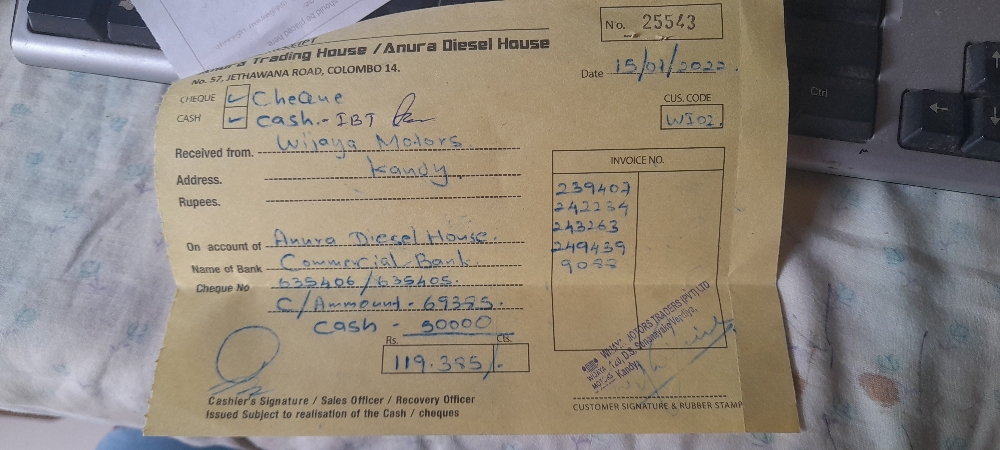 No. 25543
Trading House / Anura Diesel House
No. 57, JETHAWANA ROAD, COLOMBO 14.
Date 15/01/2022.
CHEQUE ✓ Cheque
CASH ✓ Cash.- IBT
CUS. CODE
WI01
Received from. Wijaya Motors.
Address. Kandy,
Rupees.
INVOICE NO.
239407
242234
243263
249439
9088
On account of Anura Diesel House.
Name of Bank Commercial Bank.
Cheque No 635406/635405.
C/Ammount - 69385.
Cash - 50000
Rs. Cts.
119.385/-
WIJAYA MOTORS TRADERS (PVT) LTD
Kandy.
Cashier's Signature / Sales Officer / Recovery Officer
Issued Subject to realisation of the Cash / cheques
CUSTOMER SIGNATURE & RUBBER STAMP
Ctrl